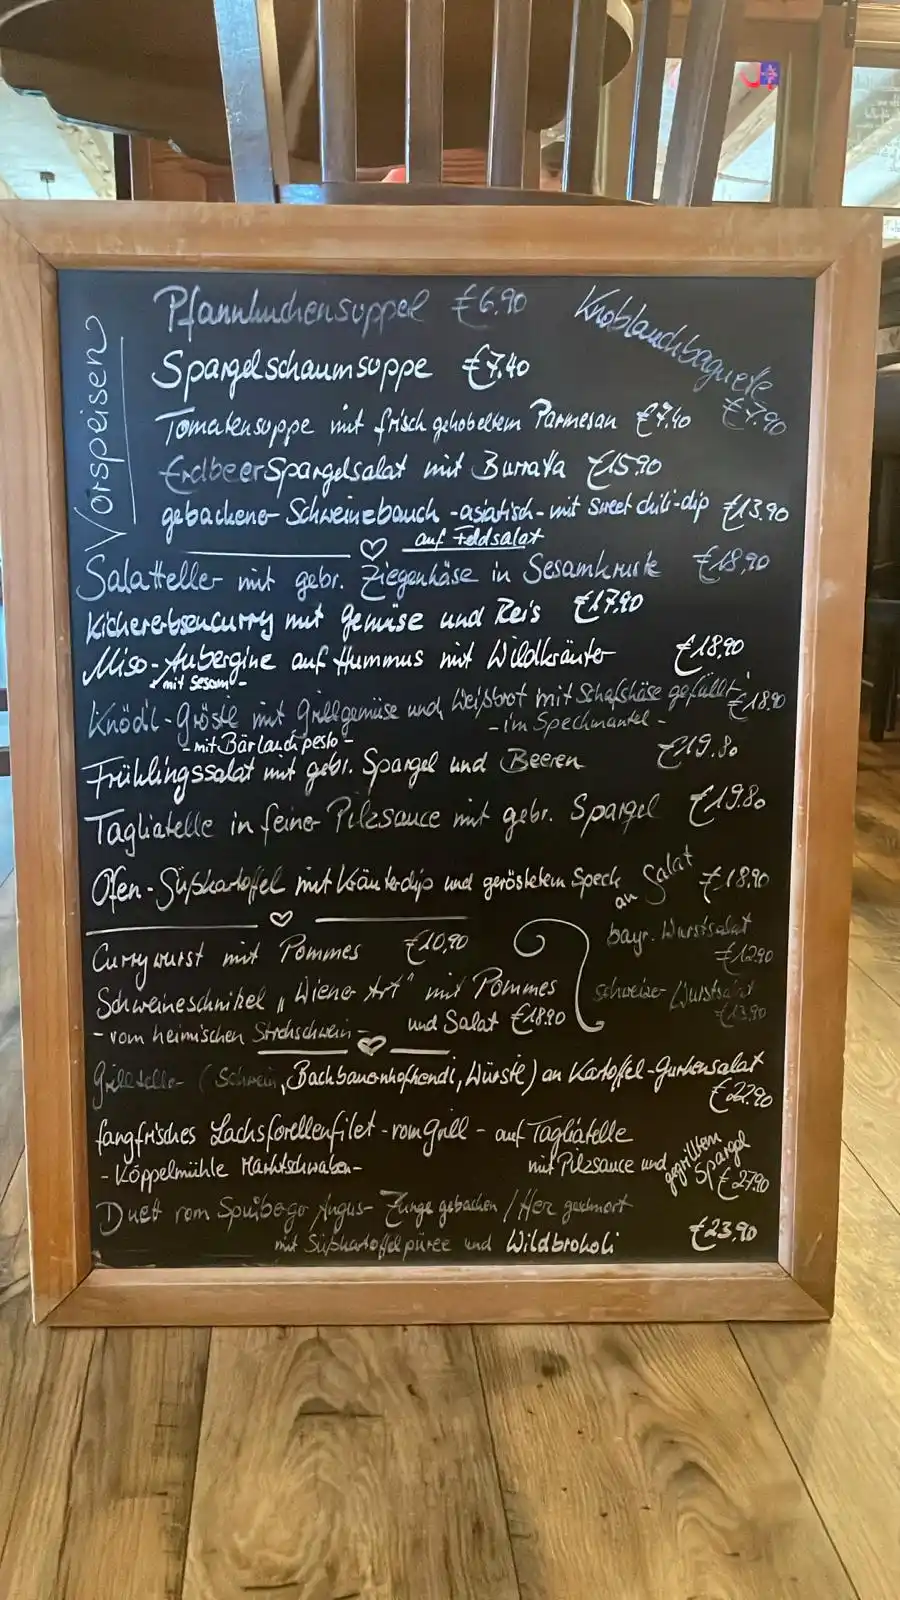 Vorspeisen
Pfannkuchensuppe €6.90
Knoblauchbaguette
€7.90
Spargelschaumsuppe €7.40
Tomatensuppe mit frisch gehobeltem Parmesan €7.40
ErdbeerSpargelsalat mit Burrata €15.90
gebackener Schweinebauch -asiatisch- mit Sweet chili-dip €13.90
auf Feldsalat
Salatteller mit gebr. Ziegenkäse in Sesamkruste €18,90
Kichererbsencurry mit Gemüse und Reis €17.90
Miso-Aubergine auf Hummus mit Wildkräuter €18,90
- mit Sesam -
Knödl-Gröstl mit Grillgemüse und Weißbrot mit Schafskäse gefüllt €18.90
- im Speckmantel -
- mit Bärlauchpesto -
Frühlingssalat mit gebr. Spargel und Beeren €19.80
Tagliatelle in feiner Pilzsauce mit gebr. Spargel €19.80
Ofen-Süßkartoffel mit Kräuterdip und geröstetem Speck an Salat €18,90
Currywurst mit Pommes €10,90
bayr. Wurstsalat
€12.90
Schweineschnitzel „Wiener Art" mit Pommes
- vom heimischen Strohschwein - und Salat €18.90
schweizer Wurstsalat
€13,90
Grillteller (Schwein, Bachbauernhofhendl, Würstl) an Kartoffel-Gurkensalat
€22.90
fangfrisches Lachsforellenfilet - vom Grill - auf Tagliatelle
- Köppelmühle Marktschwaben - mit Pilzsauce und gegrilltem Spargel €27.90
Duett vom Angus- Zunge gebacken / Herz geschmort
mit Süßkartoffelpüree und Wildbrokoli €23,90